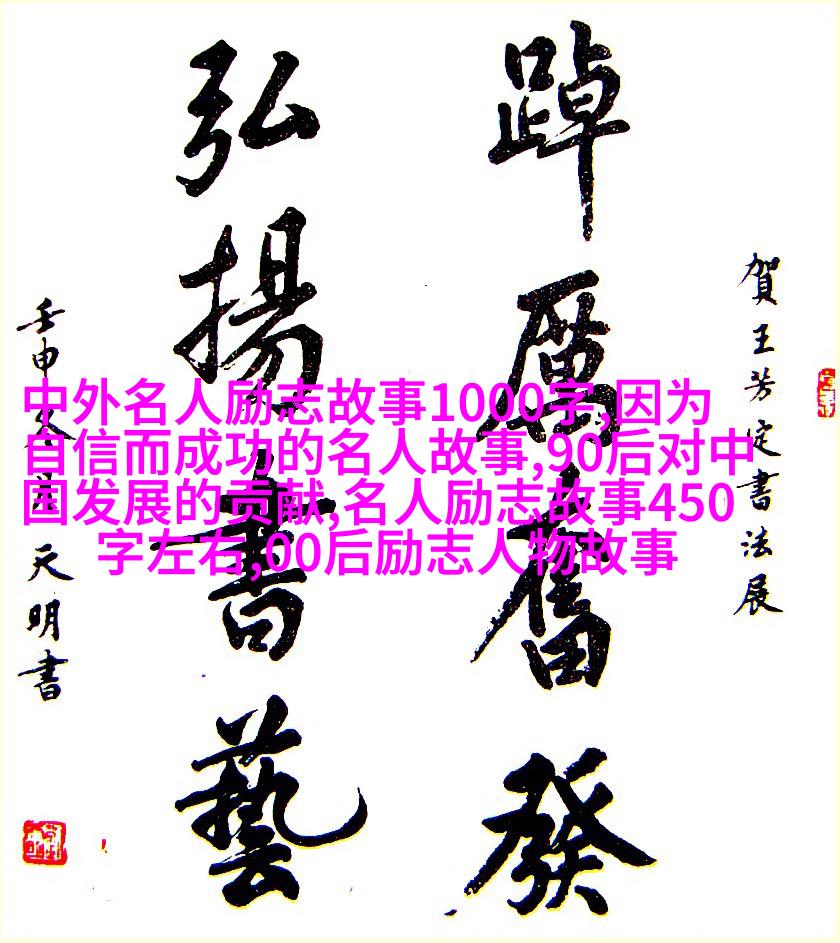 賀王芳定書法展
踔厲奮發
弘揚書藝
壬申冬
天明書
中外名人励志故事1000字,因为
自信而成功的名人故事,90后对中
国发展的贡献,名人励志故事450
字左右,00后励志人物故事